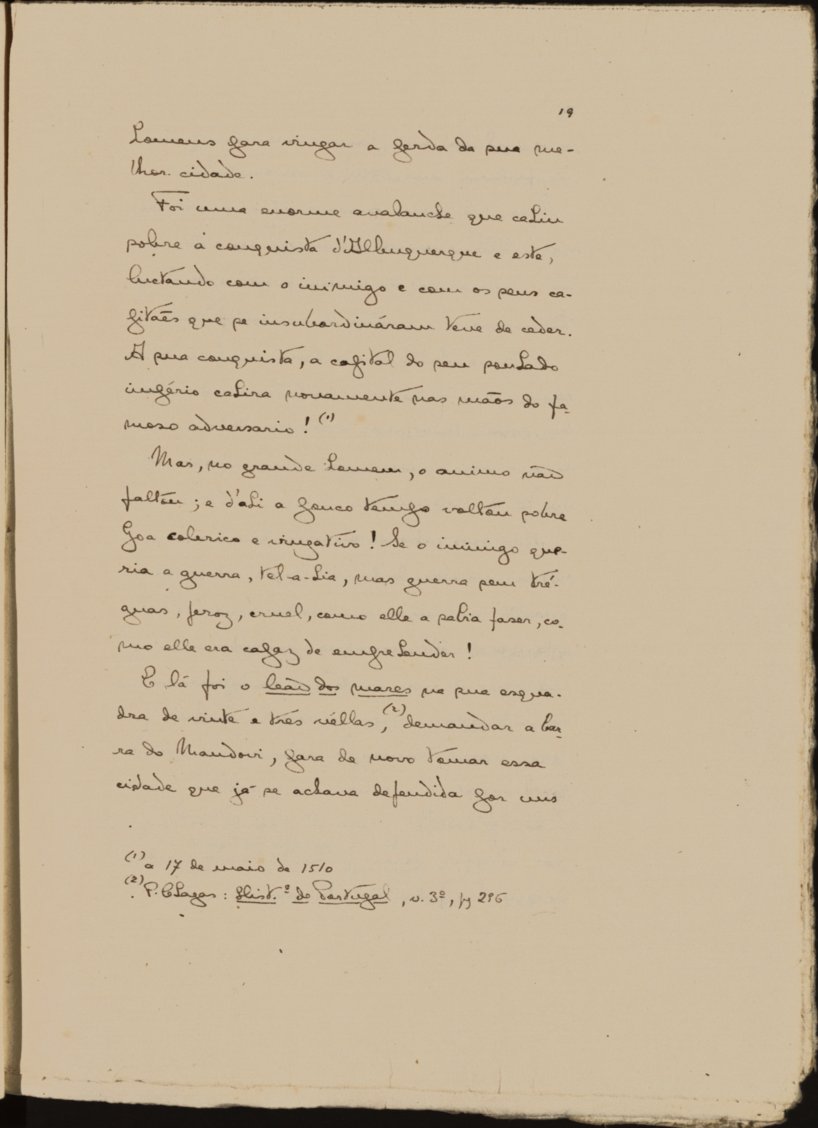 19
homens para vingar a perda da sua me-
lhor cidade.
Foi uma enorme avalanche que cahiu
sobre a conquista d'Albuquerque e este,
luctando com o inimigo e com os seus ca-
pitães que se insubordináram teve de ceder.
A sua conquista, a capital do seu sonhado
império cahira novamente nas mãos do fa-
moso adversario! (1)
Mas, no grande homem, o animo não
faltou; e d'ahi a pouco tempo voltou sobre
Goa colerico e vingativo! Se o inimigo que-
ria a guerra, tel-a-hia, mas guerra sem tré-
guas, feroz, cruel, como elle a sabia faser, co-
mo elle era capaz de emprehender!
E lá foi o leão dos mares na sua esqua-
dra de vinte e três véllas, (2) demandar a bar-
ra do Mandovi, para de novo tomar essa
cidade que já se achava defendida por uns
(1) a 17 de maio de 1510
(2) P. Chagas: Hist.ª de Portugal, v. 3º, pg 296